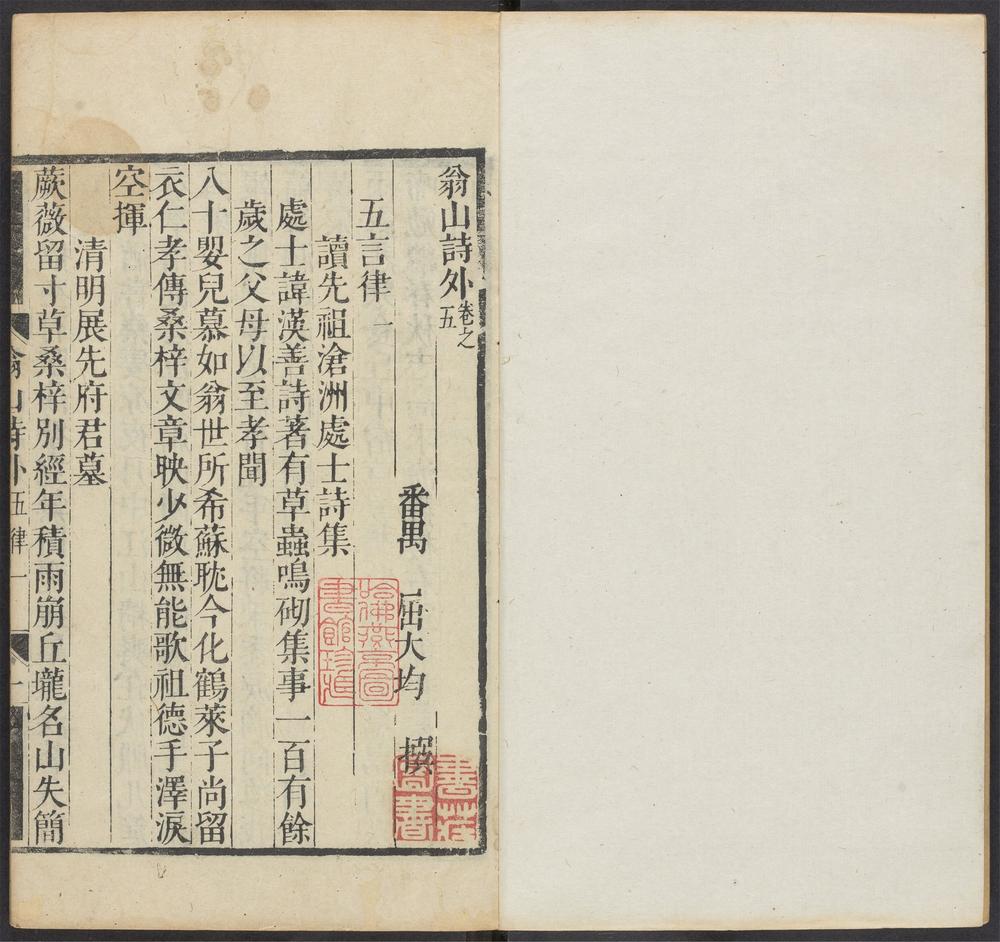 翁山詩外卷之五
番禺 屈大均 撰
五言律一
讀先祖滄洲處士詩集
處士諱漢善詩著有草蟲鳴砌集事一百有餘
歲之父母以至孝聞
八十嬰兒慕如翁世所希蘇耽今化鶴萊子尚留
衣仁孝傳桑梓文章映少微無能歌祖德手澤淚
空揮
清明展先府君墓
蕨薇留寸草桑梓別經年積雨崩丘壠名山失簡
翁山詩外 五律一 一
哈佛燕京圖書館珍藏